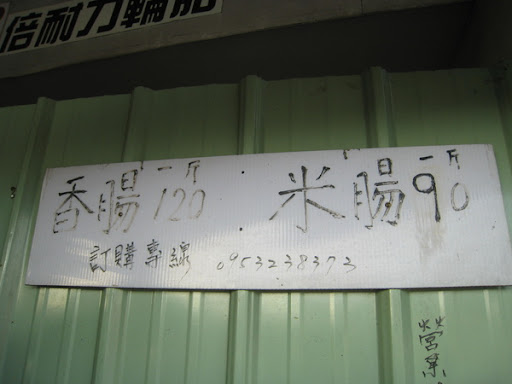 倍耐力輪胎
香腸一斤120 米腸一斤90
訂購專線 0953238373
營業